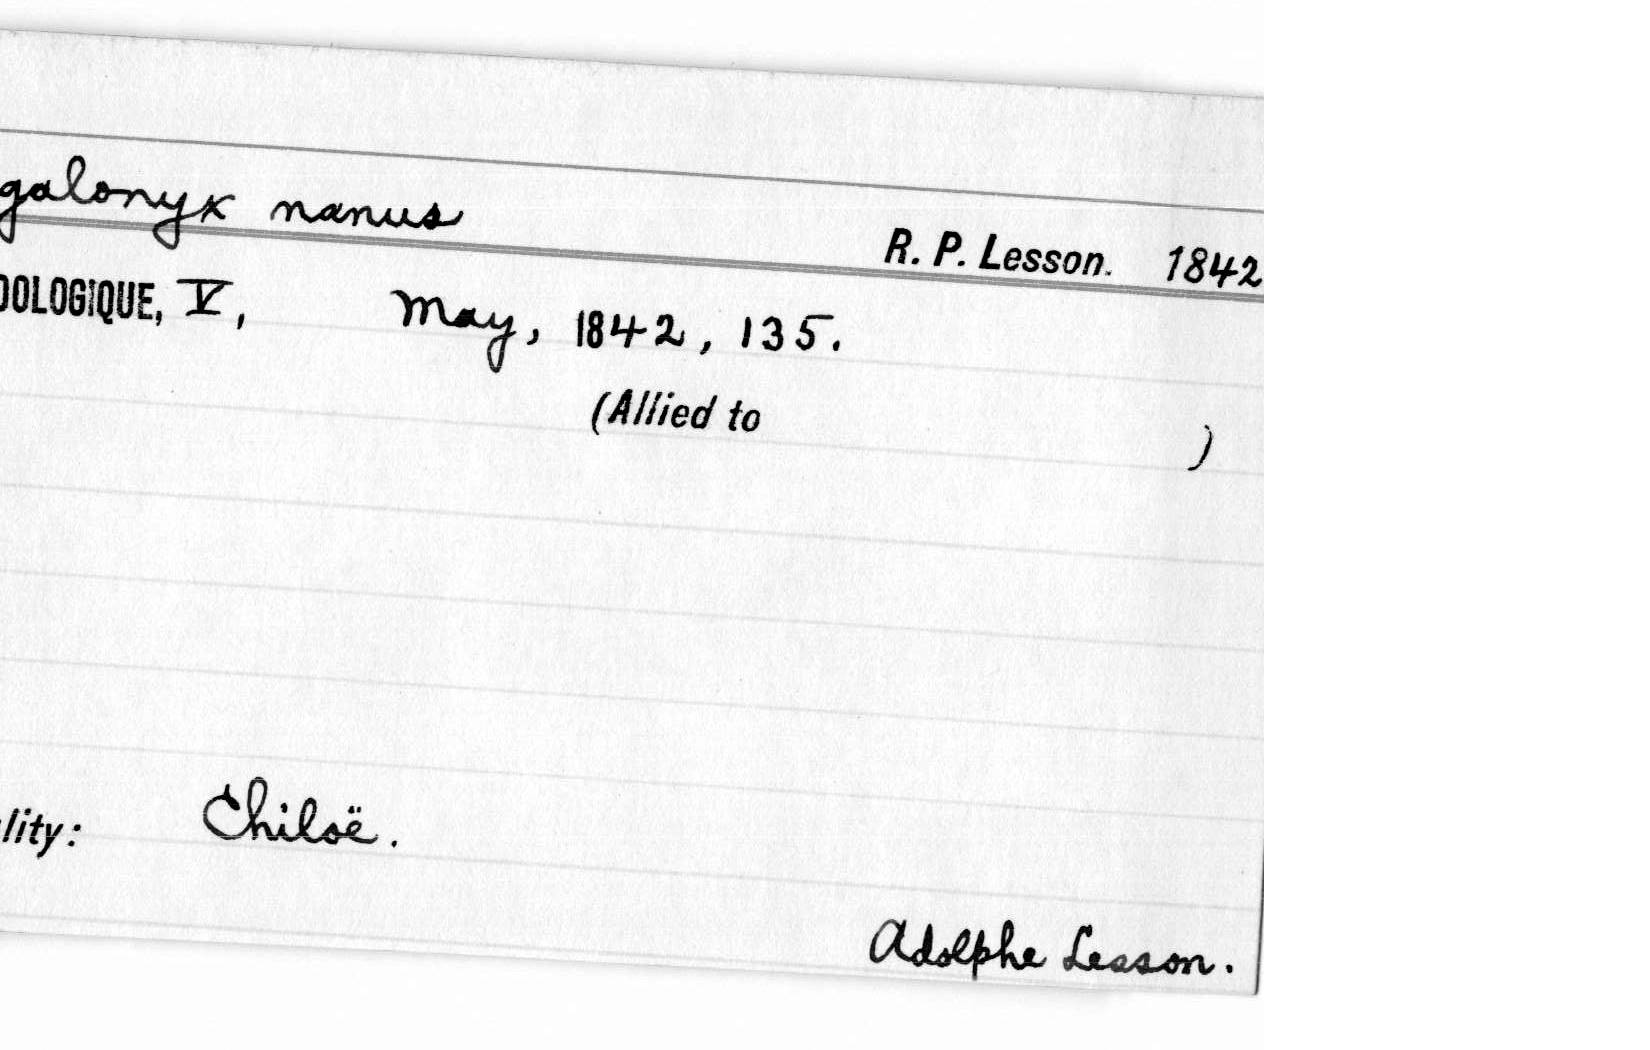 galonyx nanus R. P. Lesson. 1842
OOLOGIQUE, V, May, 1842, 135.
(Allied to )
lity: Chiloë.
Adolphe Lesson.